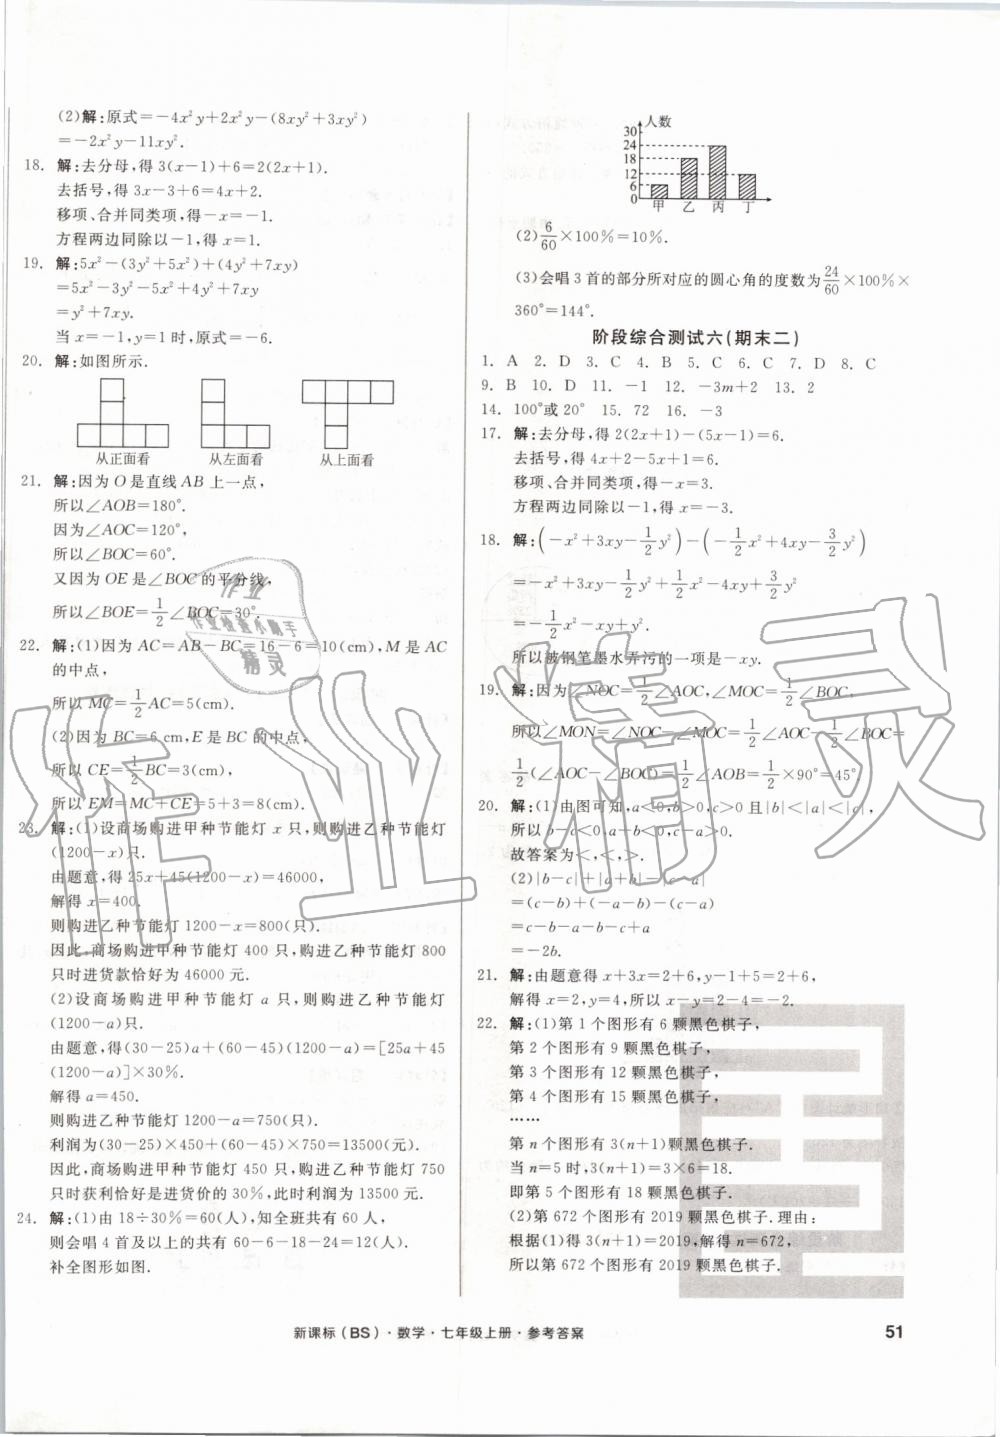 (2)解:原式=-4x²y+2x²y-(8xy²+3xy²)
=-2x²y-11xy².
18. 解:去分母,得 3(x-1)+6=2(2x+1).
去括号,得 3x-3+6=4x+2.
移项、合并同类项,得-x=-1.
方程两边同除以-1,得 x=1.
19. 解:5x²-(3y²+5x²)+(4y²+7xy)
=5x²-3y²-5x²+4y²+7xy
=y²+7xy.
当 x=-1,y=1 时,原式=-6.
20. 解:如图所示.
从正面看 从左面看 从上面看
21. 解:因为 O 是直线 AB 上一点,
所以∠AOB=180°.
因为∠AOC=120°,
所以∠BOC=60°.
又因为 OE 是∠BOC 的平分线,
所以∠BOE=1/2∠BOC=30°.
22. 解:(1)因为 AC=AB-BC=16-6=10(cm),M 是 AC
的中点,
所以 MC=1/2AC=5(cm).
(2)因为 BC=6 cm,E 是 BC 的中点,
所以 CE=1/2BC=3(cm),
所以 EM=MC+CE=5+3=8(cm).
23. 解:(1)设商场购进甲种节能灯 x 只,则购进乙种节能灯
(1200-x)只.
由题意,得 25x+45(1200-x)=46000,
解得 x=400.
则购进乙种节能灯 1200-x=800(只).
因此,商场购进甲种节能灯 400 只,购进乙种节能灯 800
只时进货款恰好为 46000 元.
(2)设商场购进甲种节能灯 a 只,则购进乙种节能灯
(1200-a)只.
由题意,得(30-25)a+(60-45)(1200-a)=[25a+45
(1200-a)]×30%.
解得 a=450.
则购进乙种节能灯 1200-a=750(只).
利润为(30-25)×450+(60-45)×750=13500(元).
因此,商场购进甲种节能灯 450 只,购进乙种节能灯 750
只时获利恰好是进货价的 30%,此时利润为 13500 元.
24. 解:(1)由 18÷30%=60(人),知全班共有 60 人,
则会唱 4 首及以上的共有 60-6-18-24=12(人).
补全图形如图.
人数
30
24
18
12
6
0
甲 乙 丙 丁
(2)6/60×100%=10%.
(3)会唱 3 首的部分所对应的圆心角的度数为24/60×100%×
360°=144°.
阶段综合测试六(期末二)
1. A 2. D 3. C 4. B 5. C 6. C 7. D 8. C
9. B 10. D 11. -1 12. -3m+2 13. 2
14. 100°或 20° 15. 72 16. -3
17. 解:去分母,得 2(2x+1)-(5x-1)=6.
去括号,得 4x+2-5x+1=6.
移项、合并同类项,得-x=3.
方程两边同除以-1,得 x=-3.
18. 解:(-x²+3xy-1/2y²)-(-1/2x²+4xy-3/2y²)
=-x²+3xy-1/2y²+1/2x²-4xy+3/2y²
=-1/2x²-xy+y².
所以被钢笔墨水弄污的一项是-xy.
19. 解:因为∠NOC=1/2∠AOC,∠MOC=1/2∠BOC,
所以∠MON=∠NOC-∠MOC=1/2∠AOC-1/2∠BOC=
1/2(∠AOC-∠BOC)=1/2∠AOB=1/2×90°=45°.
20. 解:(1)由图可知,a<0,b>0,c>0 且|b|<|a|<|c|,
所以 b-c<0,a+b<0,c-a>0.
故答案为<,<,>.
(2)|b-c|+|a+b|-|c-a|
=(c-b)+(-a-b)-(c-a)
=c-b-a-b-c+a
=-2b.
21. 解:由题意得 x+3x=2+6,y-1+5=2+6,
解得 x=2,y=4,所以 x-y=2-4=-2.
22. 解:(1)第 1 个图形有 6 颗黑色棋子,
第 2 个图形有 9 颗黑色棋子,
第 3 个图形有 12 颗黑色棋子,
第 4 个图形有 15 颗黑色棋子,
……
第 n 个图形有 3(n+1)颗黑色棋子.
当 n=5 时,3(n+1)=3×6=18.
即第 5 个图形有 18 颗黑色棋子.
(2)第 672 个图形有 2019 颗黑色棋子.理由:
根据(1)得 3(n+1)=2019,解得 n=672,
所以第 672 个图形有 2019 颗黑色棋子.
新课标(BS)·数学·七年级上册·参考答案
51
作业
作业检查小助手
精灵
作业精灵